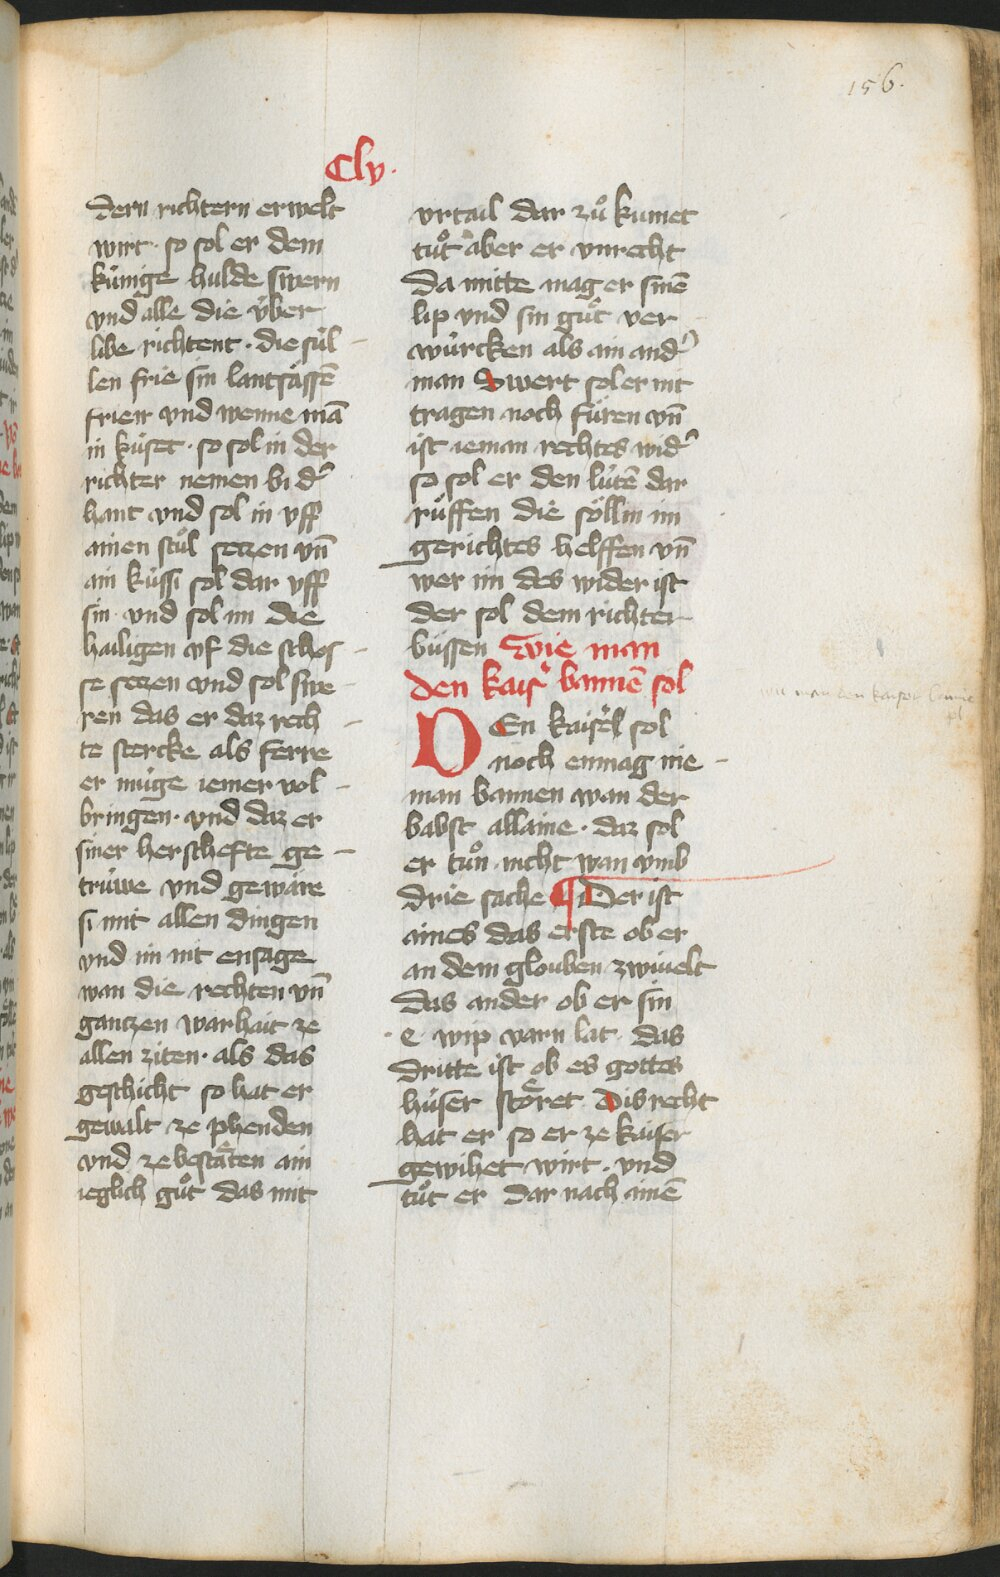 156.
Clv.
dern richtern erwelt
wirt · so sol er dem
künige hulde swern
vnd alle die v́ber
libe richtent · die súl -
len frie sin lantsässē
frien vnd wenne mā
in kúset · so sol in der
richter nemen bi d᾽
hant vnd sol in vff
ainen stůl setzen vn̄
ain kússi sol dar vff
sin · vnd sol im die
hailigen vf die schos -
se setzen vnd sol swe -
ren das er daz rech -
te stercke als ferre
er múge iemer vol -
bringen · vnd daz er
siner herschefte ge -
trúwe vnd gewäre
si mit allen dingen
vnd im nit ensage
wan die rechten vn̄
gantzen warhait ze
allen ziten · als das
geschicht so hat er
gewalt ze phenden
vnd ze bestäten ain
ieglich gůt das mit
vrtail dar zů kumet
tůt aber er vnrecht
da mitte mag er sinē
lip vnd sin gůt ver
würcken als ain and᾽
man Swert sol er nit
tragen noch fůren vn̄
ist ieman rechtes wid᾽
so sol er den lútē dar
růffen die söllin im
gerichtes helffen vn̄
wer im des wider ist
der sol dem richter
bússen Wie man
den kais᾽ bannē sol
DEn kaiser sol
noch enmag nie -
man bannen wan der
babst allaine · daz sol
er tůn · nicht wan vmb
drie sache ¶ Der ist
aines das erste ob er
an dem glouben zwiuelt
Das ander ob er sin
e · wip varn lat · das
dritte ist ob es gottes
húser störet Dis recht
hat er so er ze kaiser
gewihet wirt · vnd
tůt er dar nach ainē